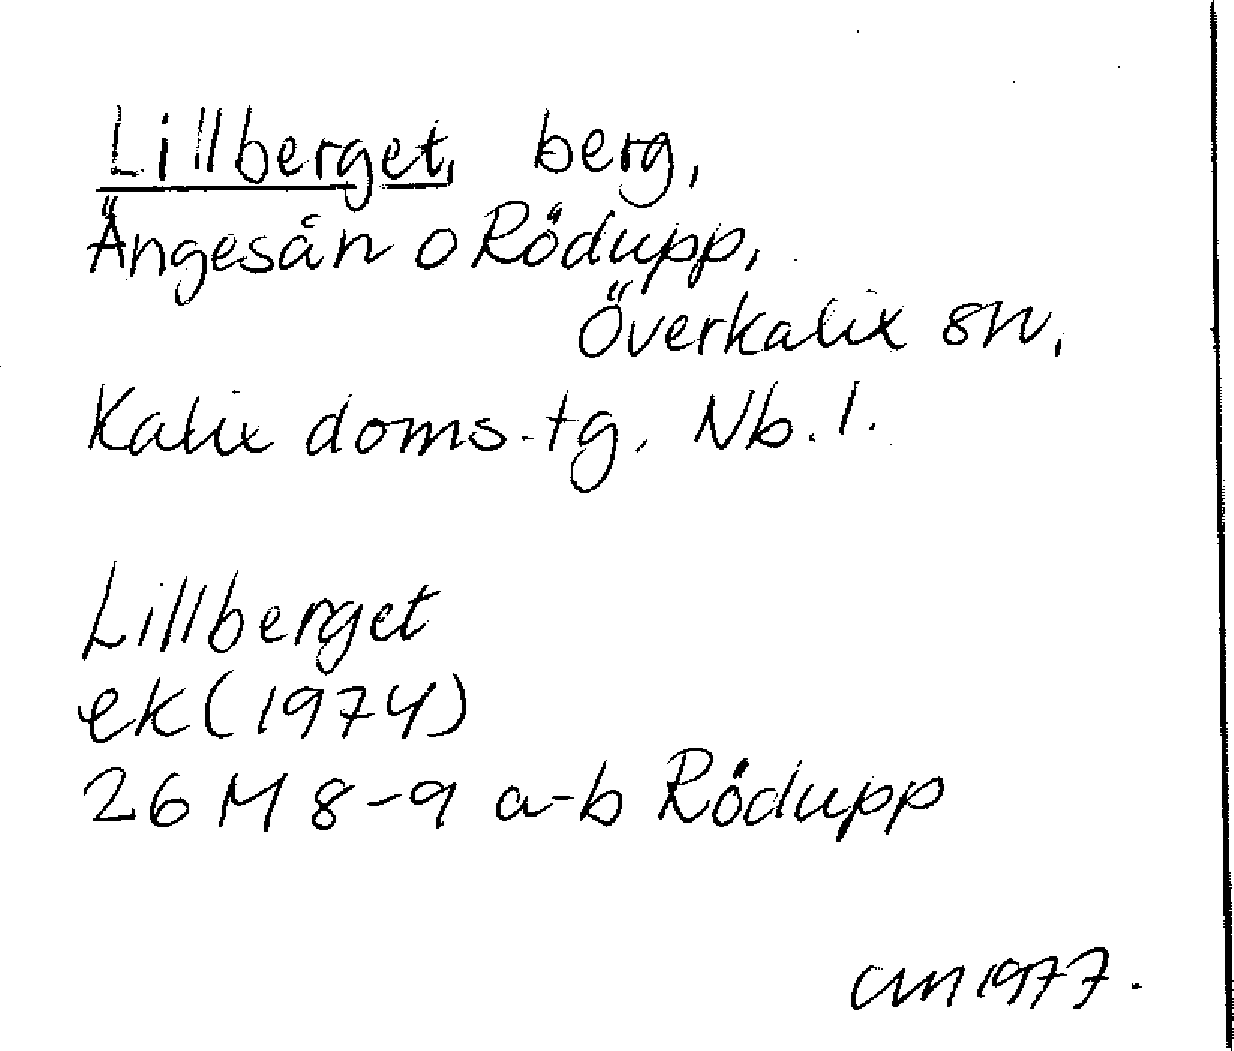 Lillberget, berg,
Ängesån o Rödupp,
Överkalix sn,
Kalix doms.tg. Nb.l.
Lillberget
ek (1974)
26 M 8-9 a-b Rödupp
CM 1977.